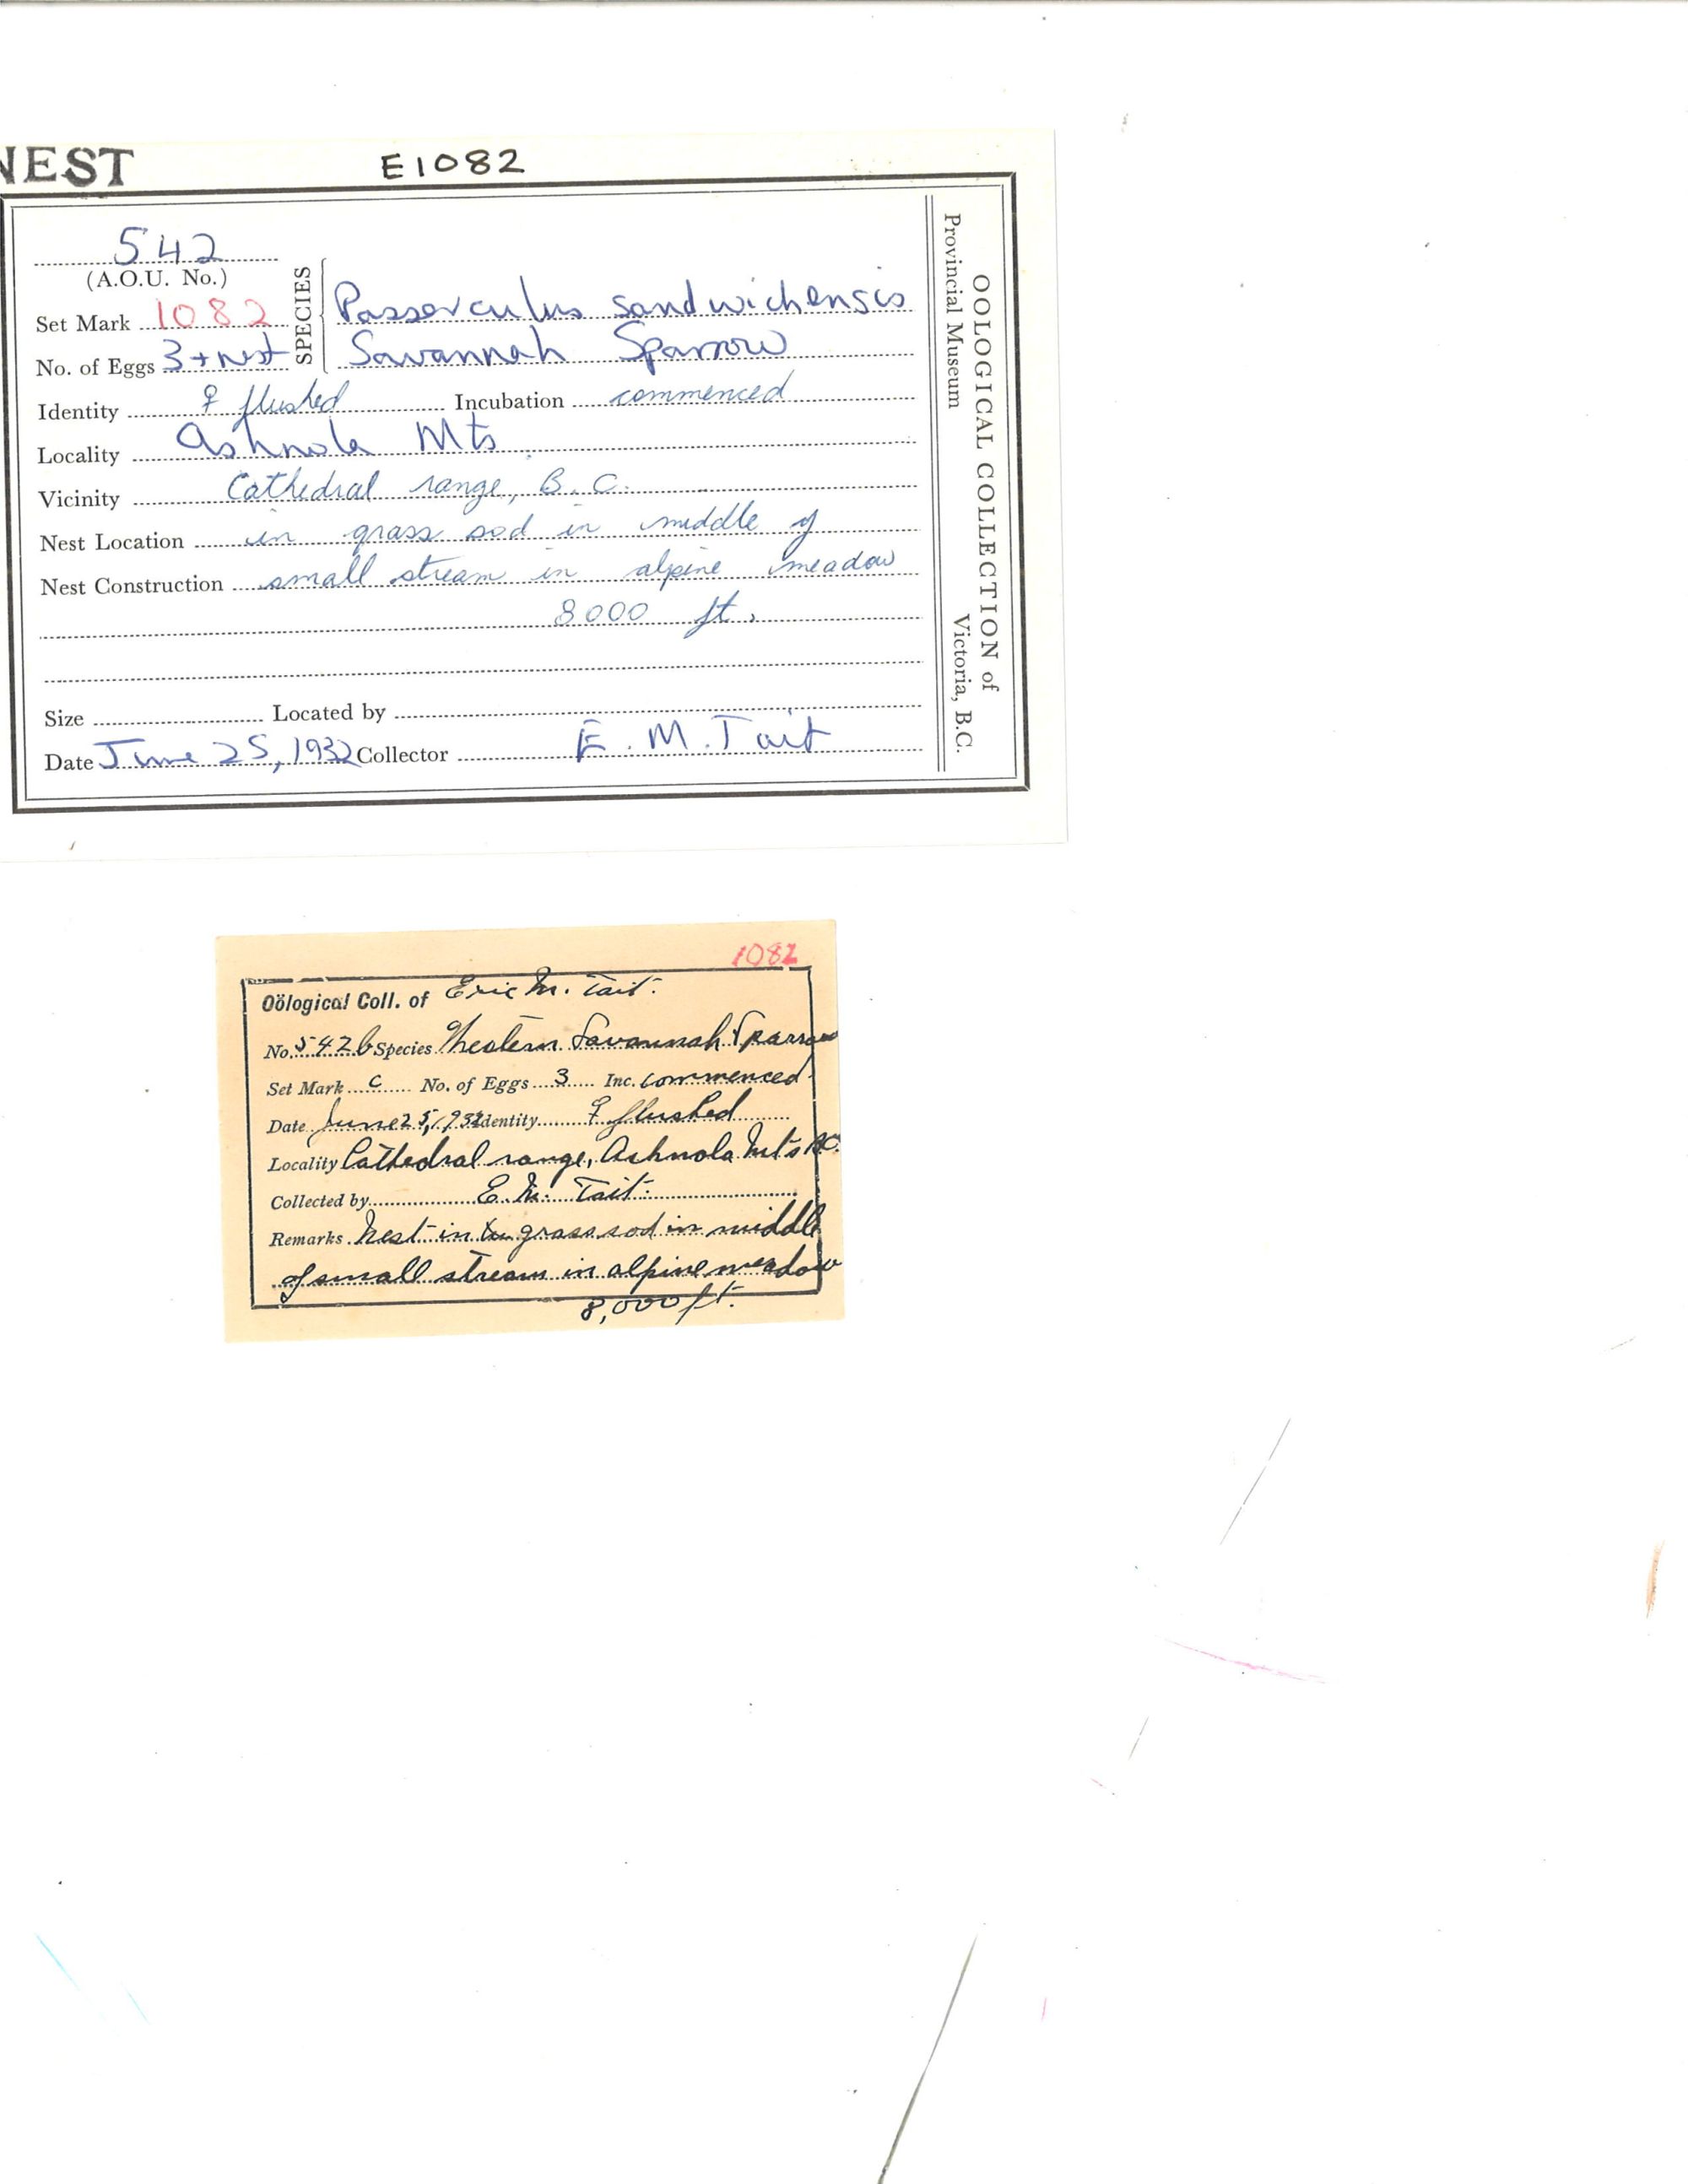 NEST E1082
542
(A.O.U. No.)
Set Mark 1082
No. of Eggs 3 + nest
SPECIES
Passerculus sandwichensis
Savannah Sparrow
Identity ♀ flushed Incubation commenced
Locality Ashnola Mts.
Vicinity Cathedral range, B.C.
Nest Location in grass sod in middle of
Nest Construction small stream in alpine meadow
8000 ft.
Size Located by
Date June 25, 1932 Collector E. M. Tait
OOLOGICAL COLLECTION of
Provincial Museum Victoria, B.C.
1082
Oölogical Coll. of Eric M. Tait.
No. 542b Species Western Savannah Sparrow
Set Mark C No. of Eggs 3 Inc. commenced
Date June 25, 1932 Identity ♀ flushed
Locality Cathedral range, Ashnola Mts BC.
Collected by E. M. Tait.
Remarks Nest in grass sod in middle
of small stream in alpine meadow
8,000 ft.